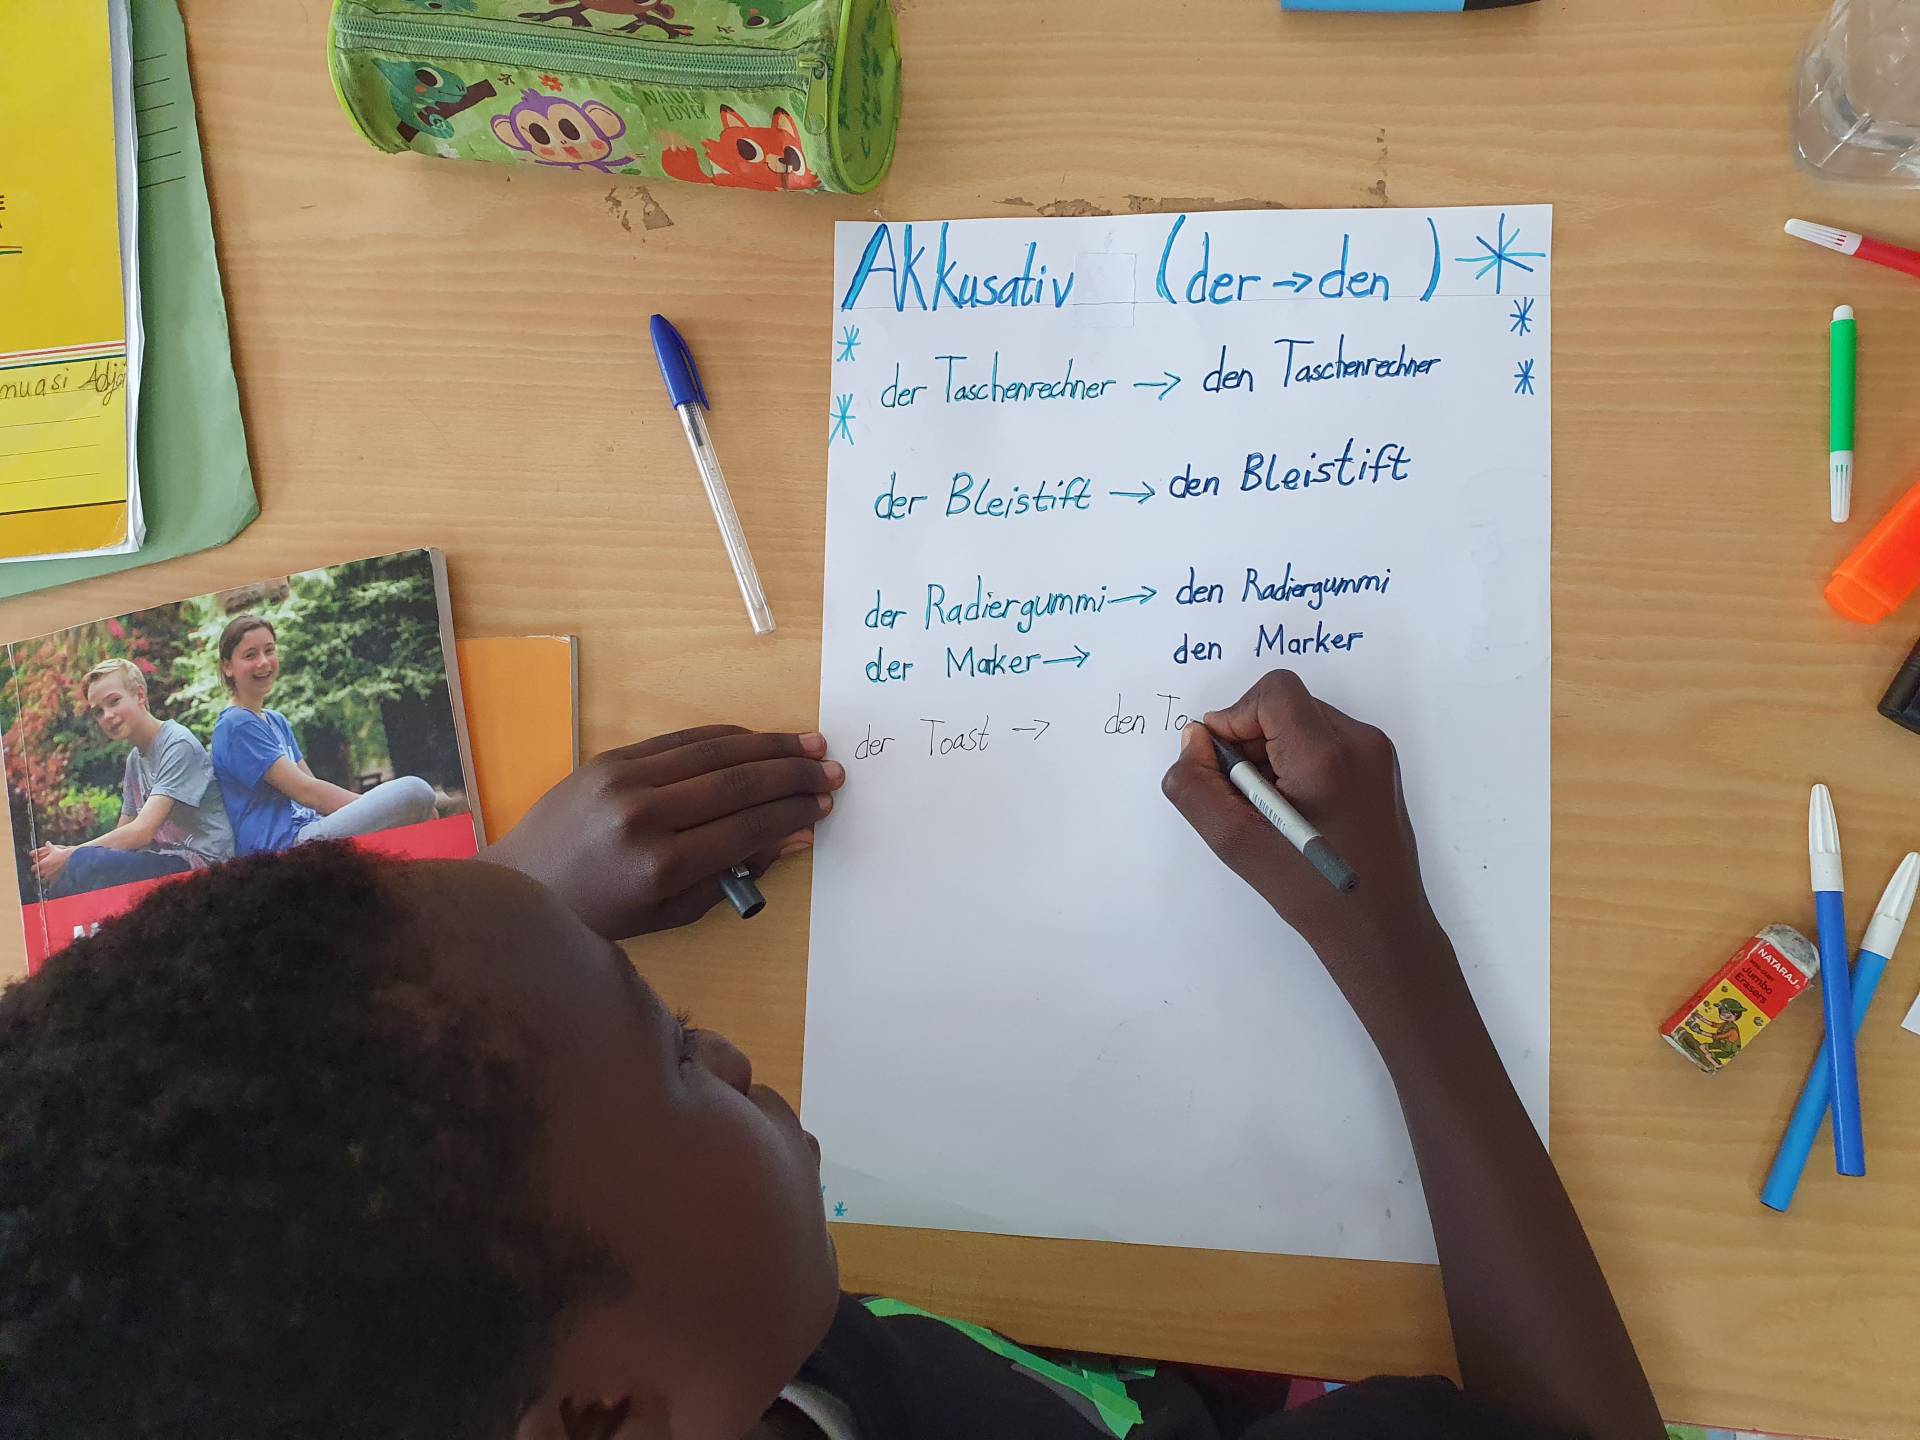 NATURE
LOVER
Akkusativ (der → den)
der Taschenrechner → den Taschenrechner
der Bleistift → den Bleistift
der Radiergummi → den Radiergummi
der Maker → den Marker
der Toast → den To
NATARAJ
Jumbo
Erasers